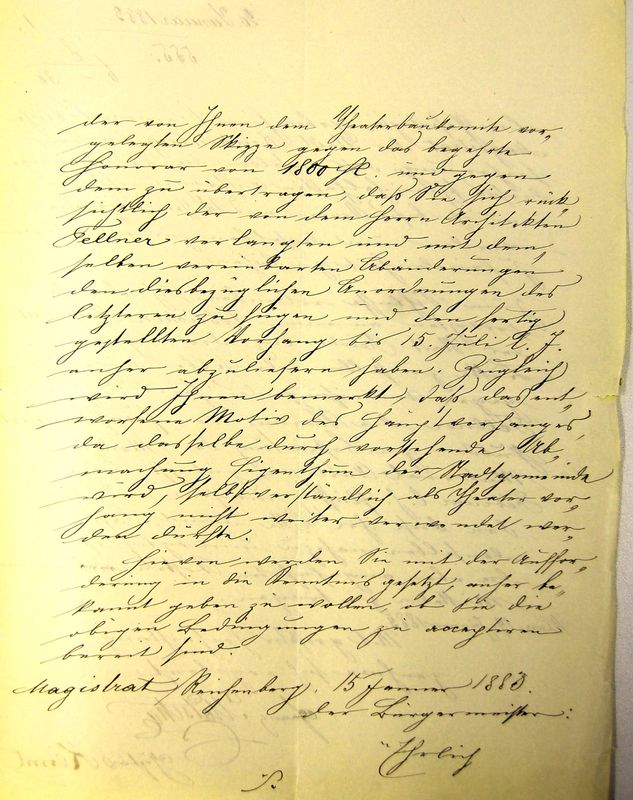 der von Ihnen dem Theaterbaukomite vor-
gelegten Skizze gegen das begehrte
Honorar von 1800 fl. und gegen
dem zu übertragen, daß Sie sich rück-
sichtlich der von dem Herrn Architekten
Fellner verlangten und mit dem-
selben vereinbarten Abänderungen
den diesbezüglichen Anordnungen des
letzteren zu fügen und den fertig
gestellten Vorhang bis 15. Juli l. J.
anher abzuliefern haben. Zugleich
wird Ihnen bemerkt, daß das ent-
worfene Motiv des Hauptvorhanges,
da dasselbe durch vorstehende Ab-
machung Eigenthum der Stadtgemeinde
wird, selbstverständlich als Theater vor-
hang nicht weiter verwendet wer-
den dürfte.
Hievon werden Sie mit der Auffor-
derung in die Kenntnis gesetzt, anher be-
kannt geben zu wollen, ob Sie die
obigen Bedingungen zu acceptiren
bereit sind.
Magistrat Reichenberg, 15 Jänner 1883.
der Bürgermeister: